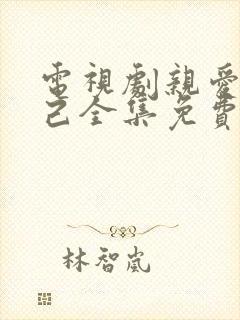 電視劇親愛
己全集免費
林智嵐